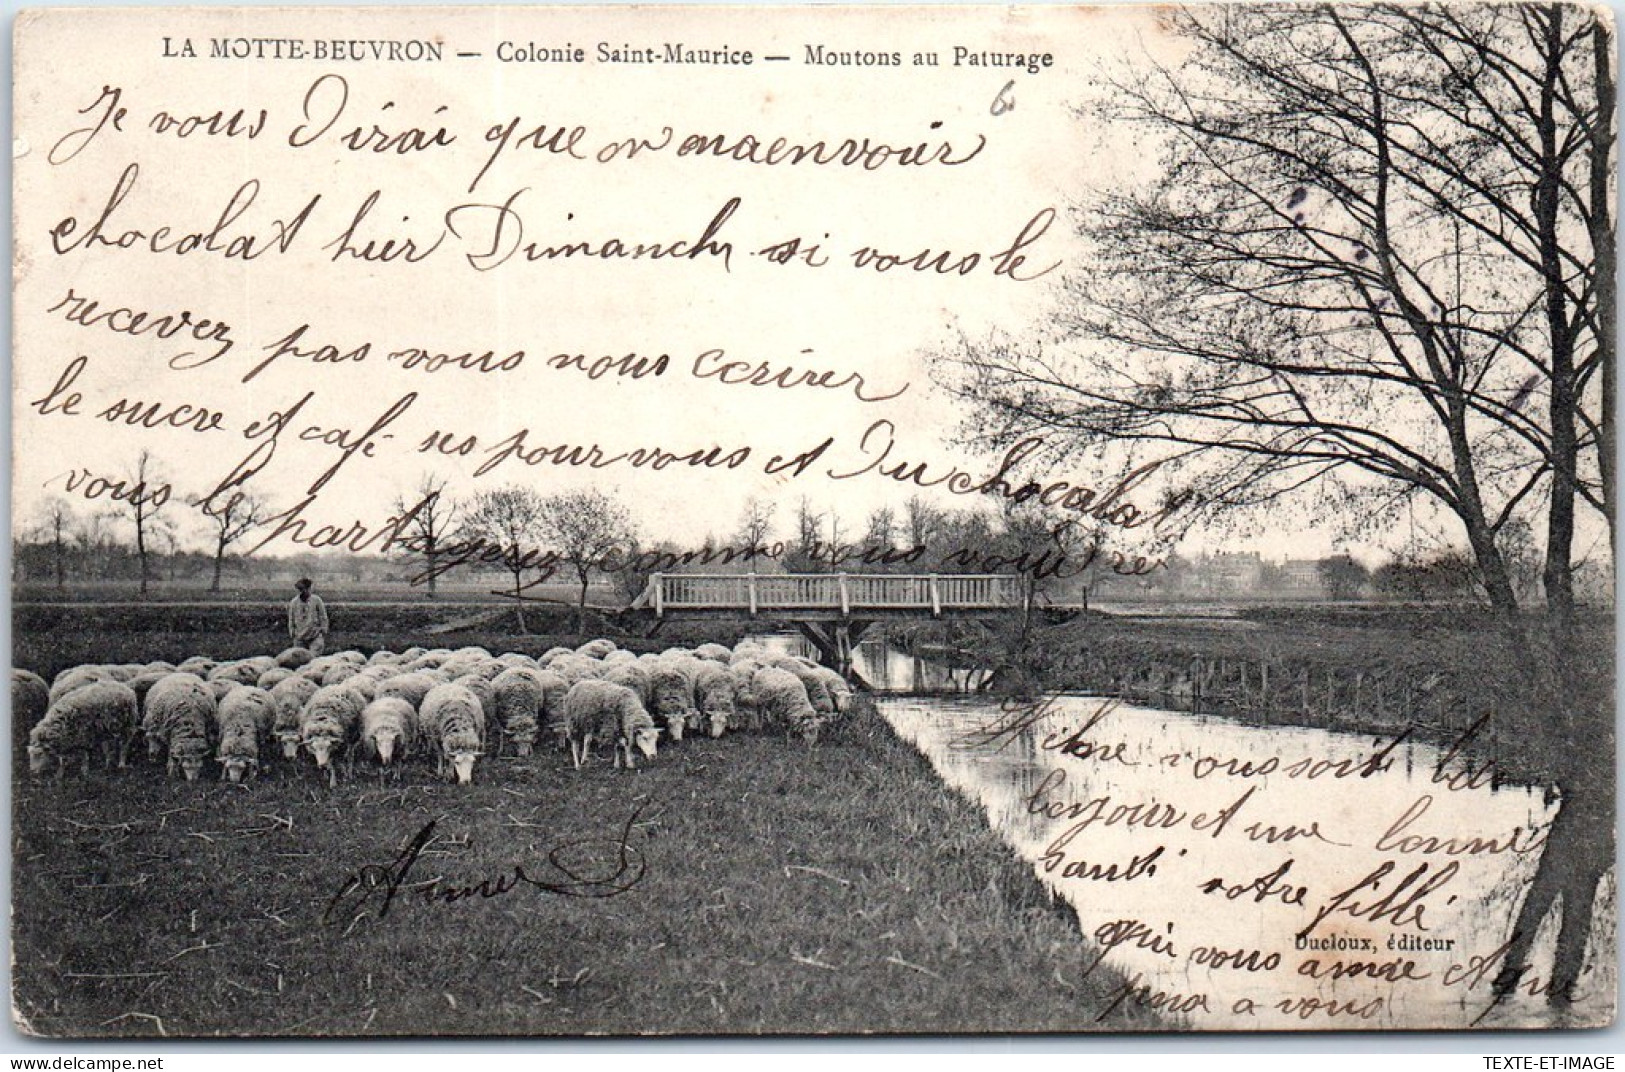 LA MOTTE-BEUVRON — Colonie Saint-Maurice — Moutons au Paturage
6
Je vous Dirai que on ma envoier
chocolat hier Dimanch si vous le
recevez pas vous nous ecrirer
le sucre et café ses pour vous et Du chocolat
vous le partagerez comme vous voulere
chere vous soit
bonjour et une bonne
santi votre fillé
qui vous aimae et qui
pense a vous
Aimer
Ducloux, éditeur
TEXTE-ET-IMAGE